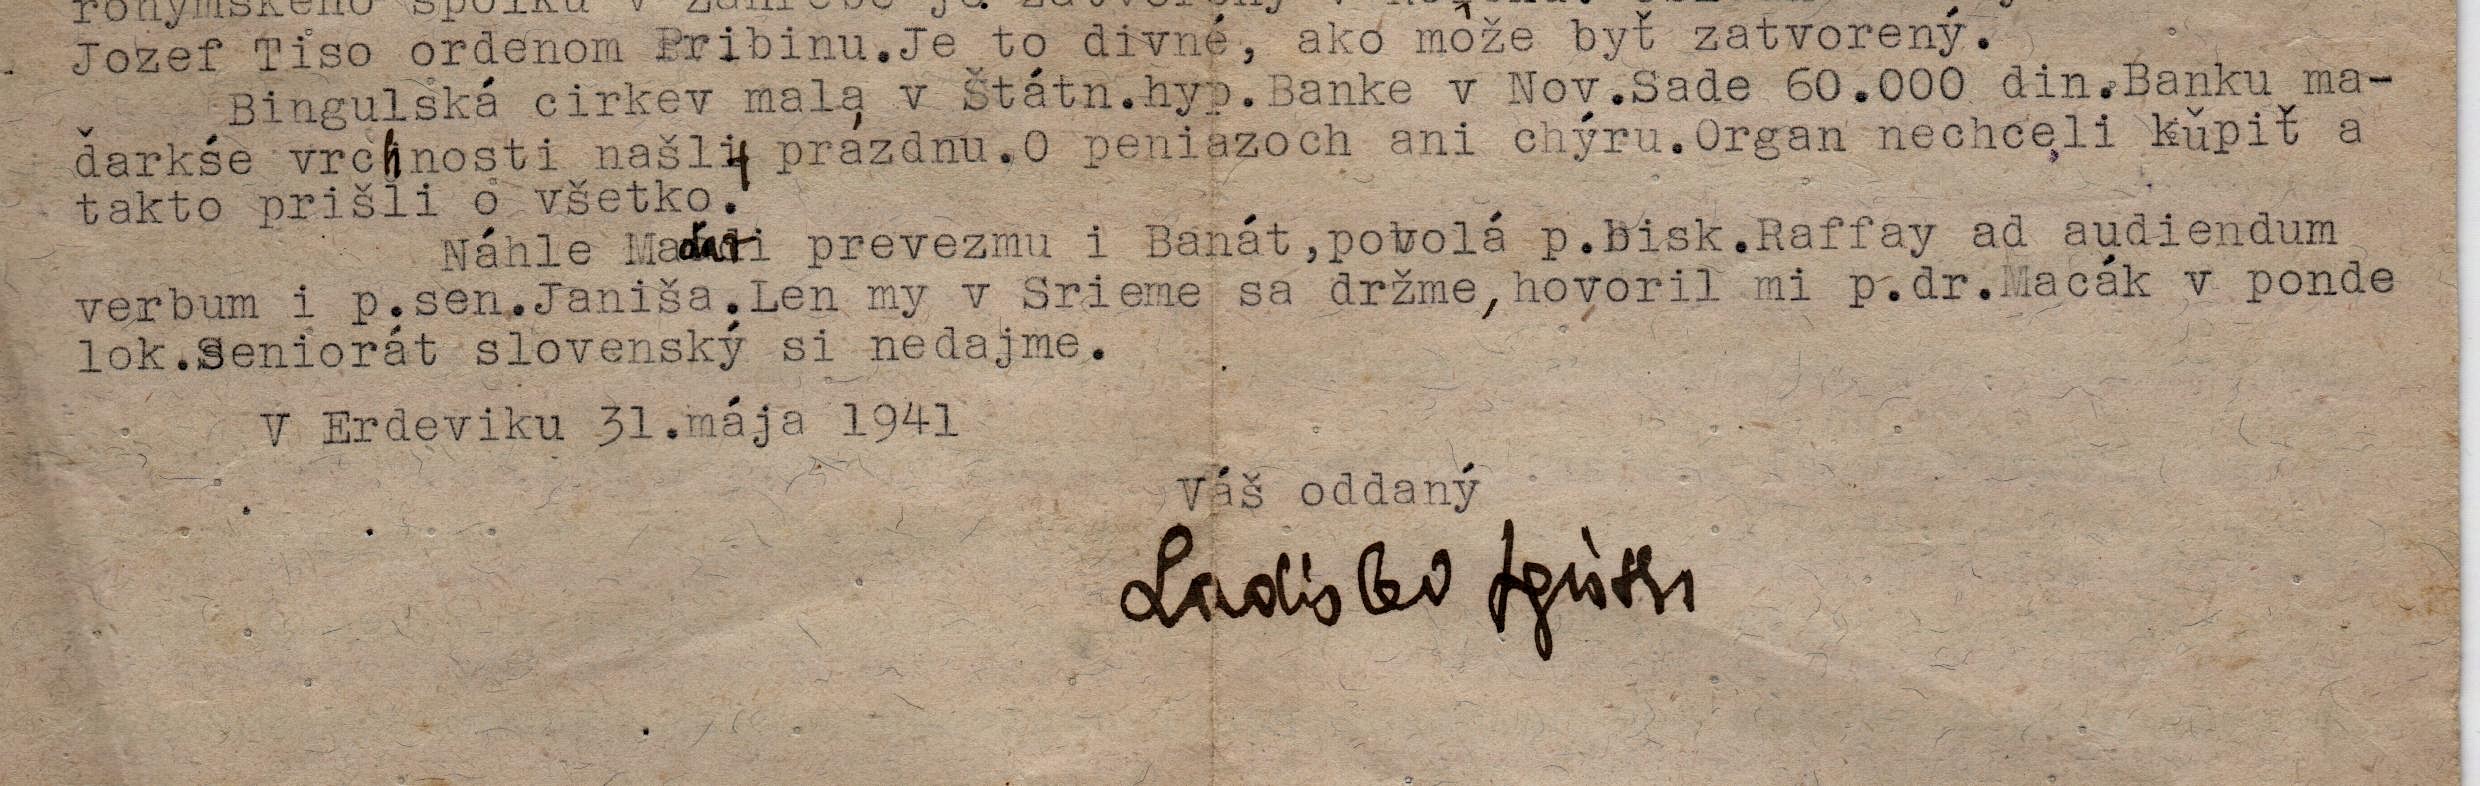 ronymského spolku v Záhrebe je zatvorený v
Jozef Tiso ordenom Pribinu.Je to divné, ako môže byť zatvorený.
Bingulská cirkev mala v Štátn.hyp.Banke v Nov.Sade 60.000 din.Banku ma-
ďarkśe vrchnosti našli prázdnu.O peniazoch ani chýru.Organ nechceli kǔpiť a
takto prišli o všetko.
Náhle Maďari prevezmu i Banát,povolá p.bisk.Raffay ad audiendum
verbum i p.sen.Janiša.Len my v Srieme sa držme,hovoril mi p.dr.Macák v ponde
lok.Seniorát slovenský si nedajme.
V Erdeviku 31.mája 1941
Váš oddaný
Ladislav